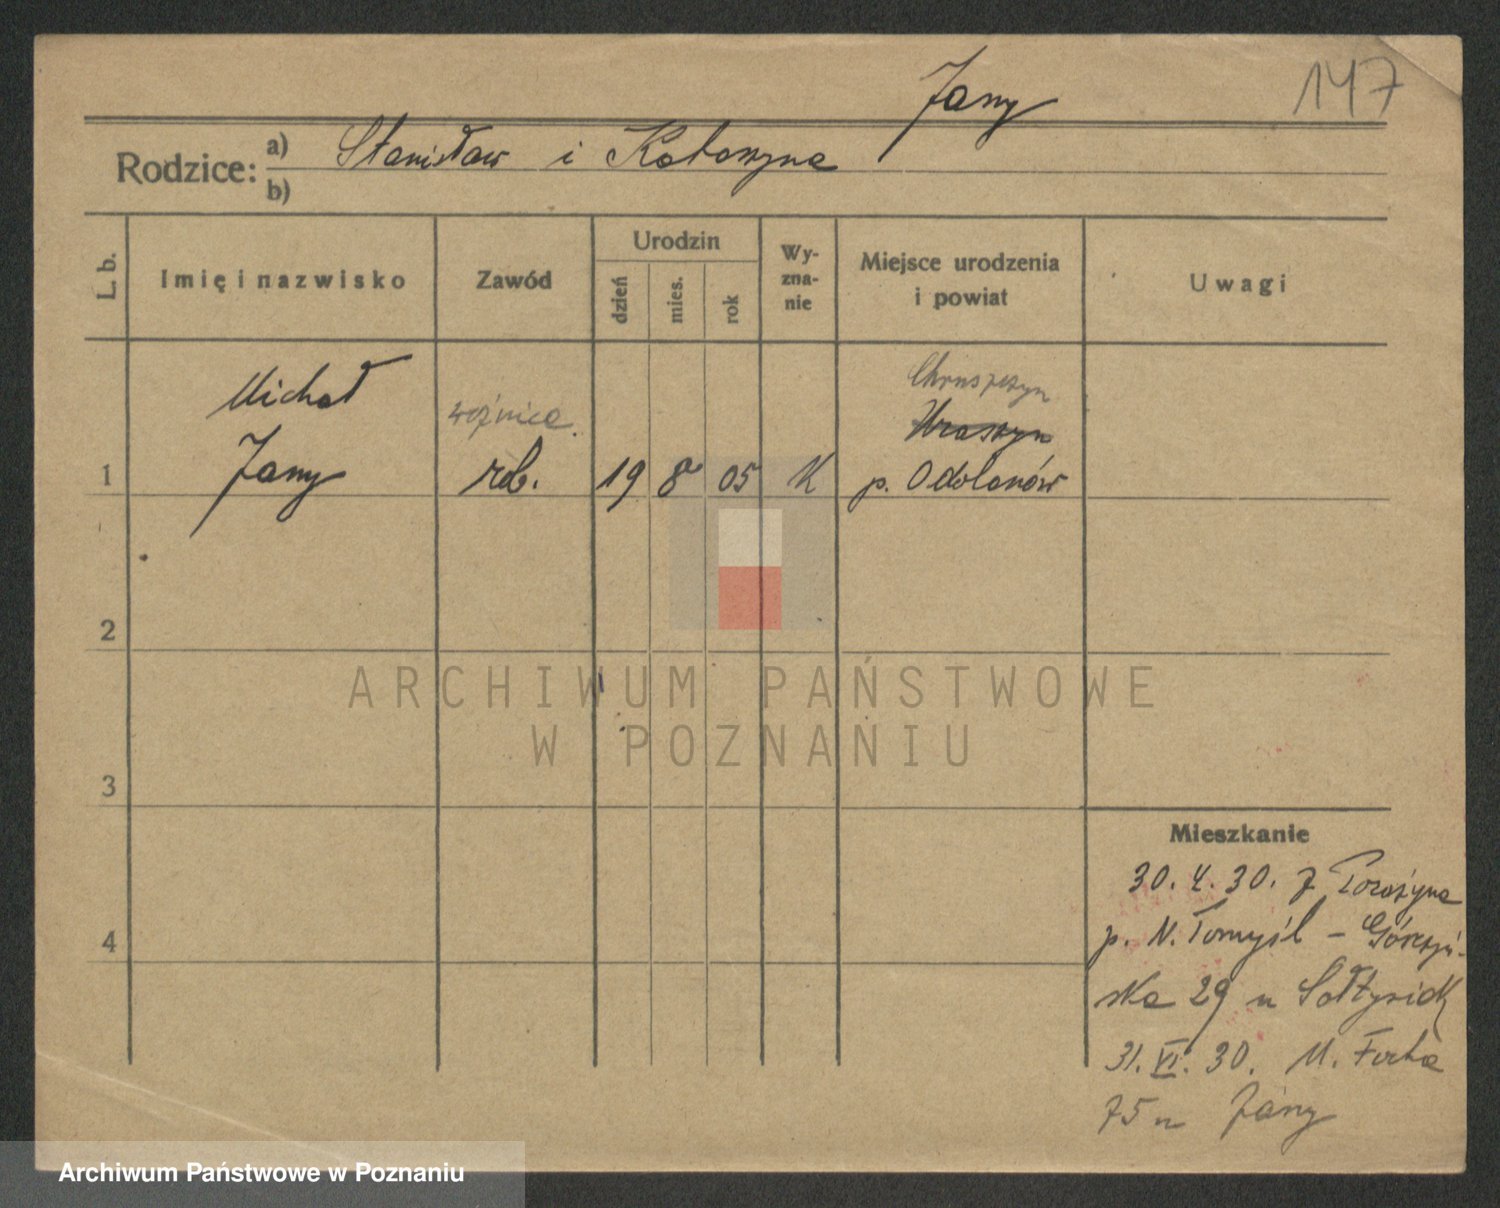 Jany
147
Rodzice: a) Stanisław i Katarzyna
b)
L. b.
Imię i nazwisko
Zawód
Urodzin
dzień
mies.
rok
Wy-
zna-
nie
Miejsce urodzenia
i powiat
Uwagi
Michał
woźnica
Chruszczyn
1 Jany rob. 19 8 05 K p. Odolanów
2
ARCHIWUM PAŃSTWOWE
W POZNANIU
3
Mieszkanie
30. 4. 30. z
4 p. N. Tomyśl - Górczyń-
ska 29 u Sołtysiak
31. VI. 30. M. Focha
75 u Jany
Archiwum Państwowe w Poznaniu